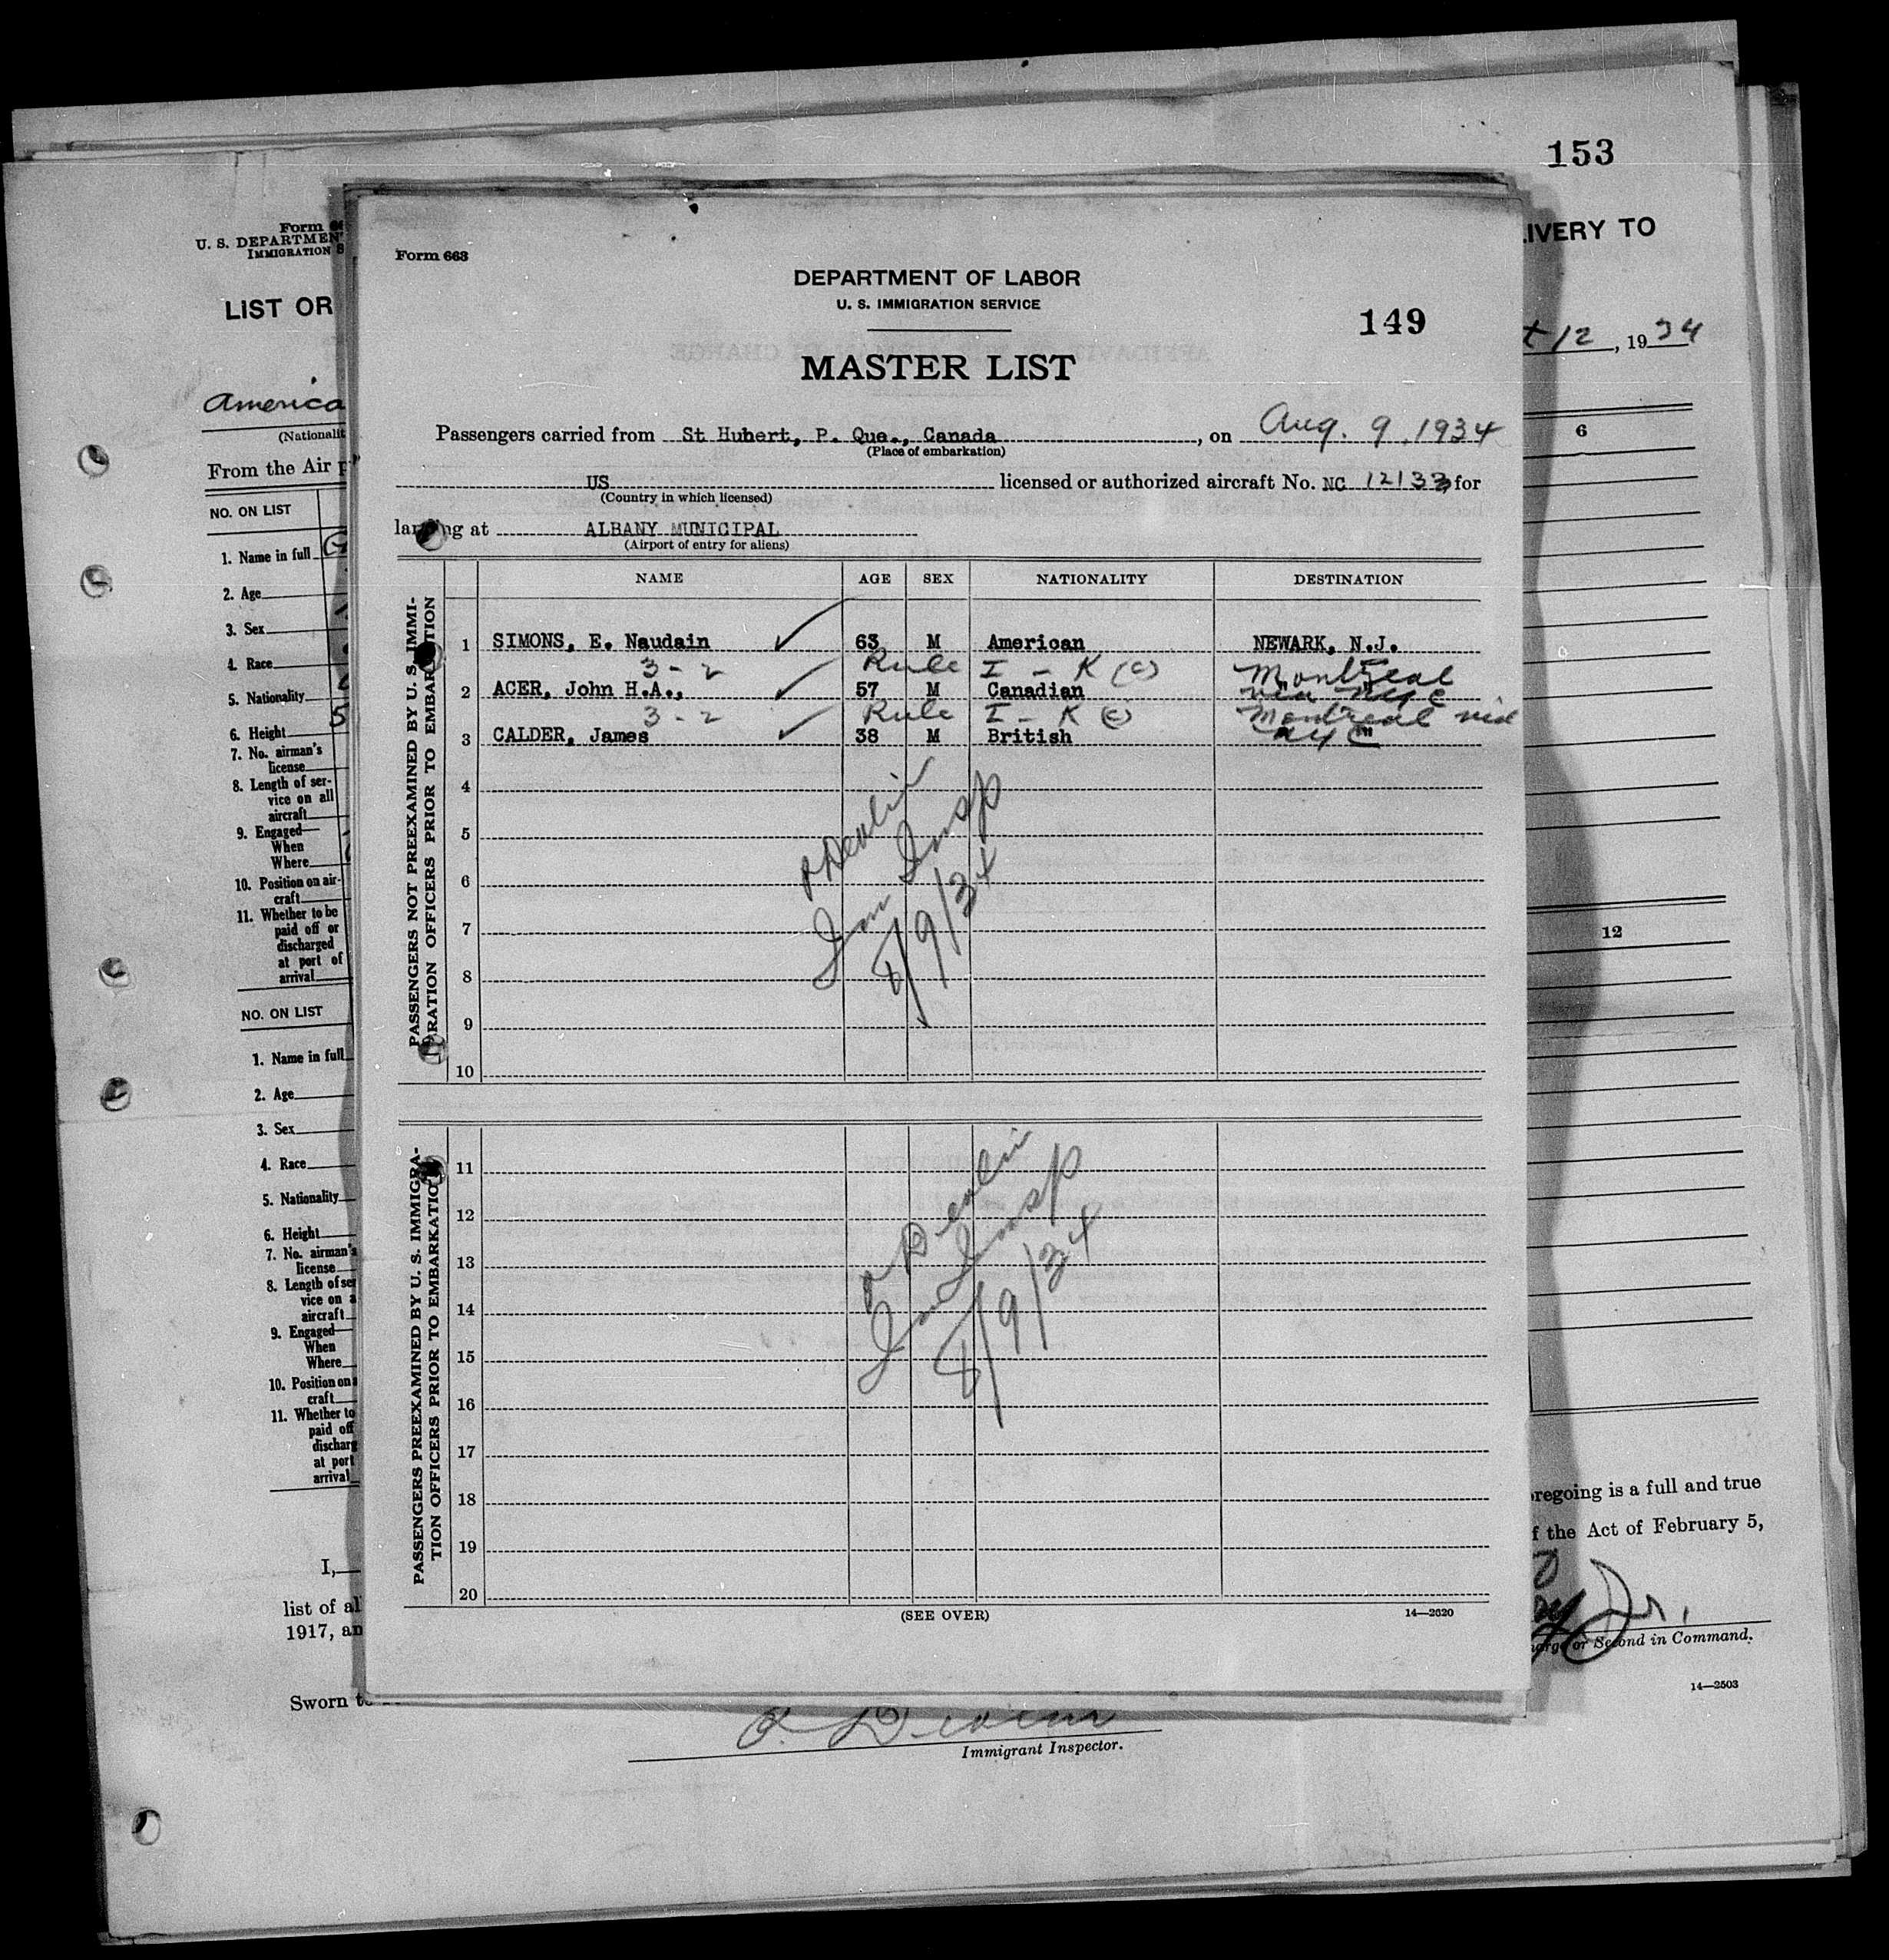 153
Form
U. S. DEPARTMEN
IMMIGRATION S
LIST OR
IVERY TO
12, 1934
America
(Nationalit
From the Air p
NO. ON LIST
1. Name in full
2. Age
3. Sex
4. Race
5. Nationality
6. Height
7. No. airman's
license
8. Length of ser-
vice on all
aircraft
9. Engaged—
When
Where
10. Position on air-
craft
11. Whether to be
paid off or
discharged
at port of
arrival
NO. ON LIST
1. Name in full
2. Age
3. Sex
4. Race
5. Nationality
6. Height
7. No. airman's
license
8. Length of ser
vice on a
aircraft
9. Engaged—
When
Where
10. Position on a
craft
11. Whether to
paid off
discharg
at port
arrival
I,
list of al
1917, an
Sworn t
6
12
oregoing is a full and true
f the Act of February 5,
Jr.
harge or Second in Command.
14—2503
Immigrant Inspector.
Form 663
DEPARTMENT OF LABOR
U. S. IMMIGRATION SERVICE
149
MASTER LIST
Passengers carried from St Hubert, P. Que., Canada, on Aug. 9, 1934
(Place of embarkation)
US licensed or authorized aircraft No. NC 12133, for
(Country in which licensed)
landing at ALBANY MUNICIPAL
(Airport of entry for aliens)
NAME AGE SEX NATIONALITY DESTINATION
PASSENGERS NOT PREEXAMINED BY U. S. IMMI-
GRATION OFFICERS PRIOR TO EMBARKATION
1 SIMONS, E. Naudain 63 M American NEWARK, N.J.
3-2 Rule I - K (c) Montreal
2 ACER, John H.A., 57 M Canadian via NYC
3-2 Rule I - K (c) Montreal via
3 CALDER, James 38 M British NYC
4
5
6
7
8
9
10
Devlin
Imm Insp
8/9/34
PASSENGERS PREEXAMINED BY U. S. IMMIGRA-
TION OFFICERS PRIOR TO EMBARKATION
11
12
13
14
15
16
17
18
19
20
Devlin
Imm Insp
8/9/34
(SEE OVER)
14—2620